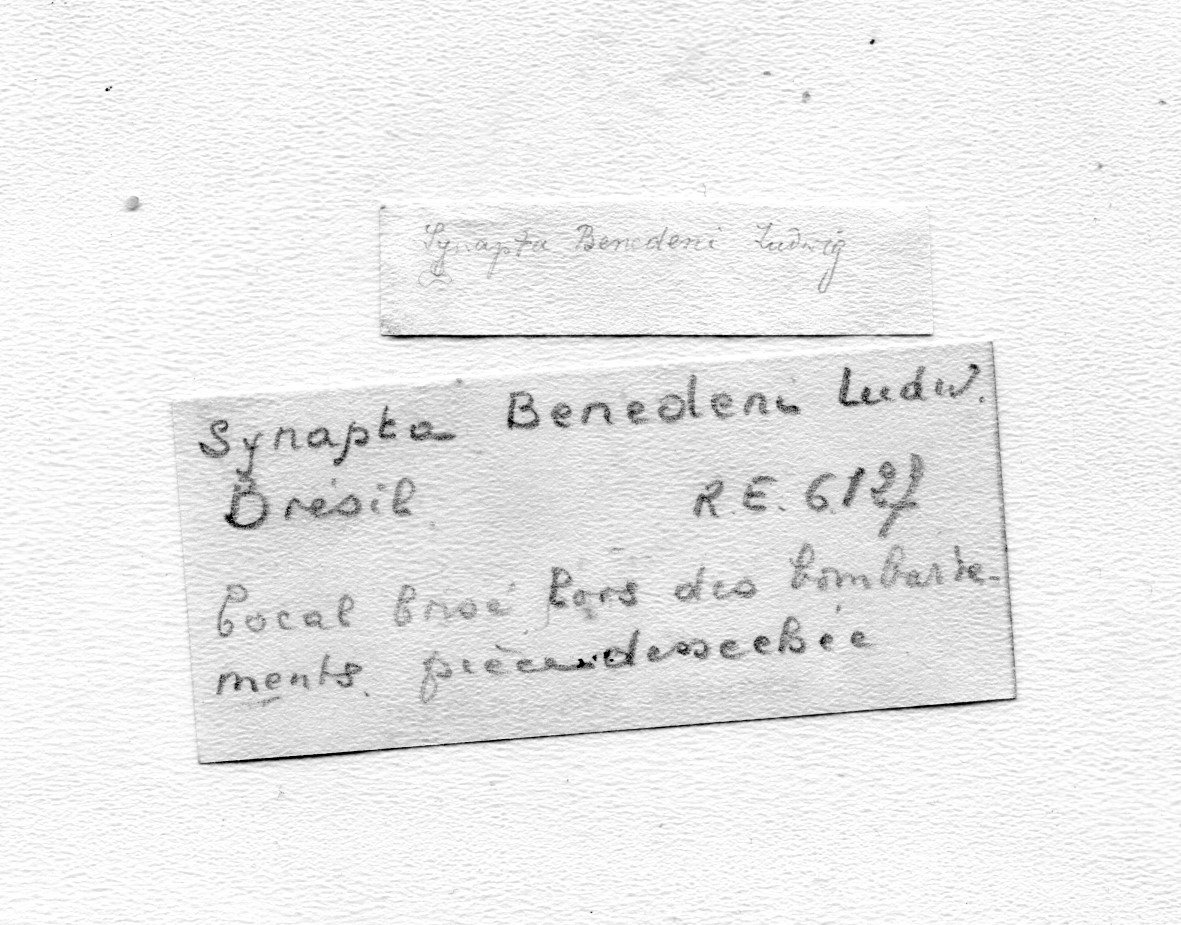 Synapta Benedeni Ludwig
Synapta Benedeni Ludw.
Brésil. R.E. 6127
bocal brisé lors des bombarde-
ments. pièce dessechée